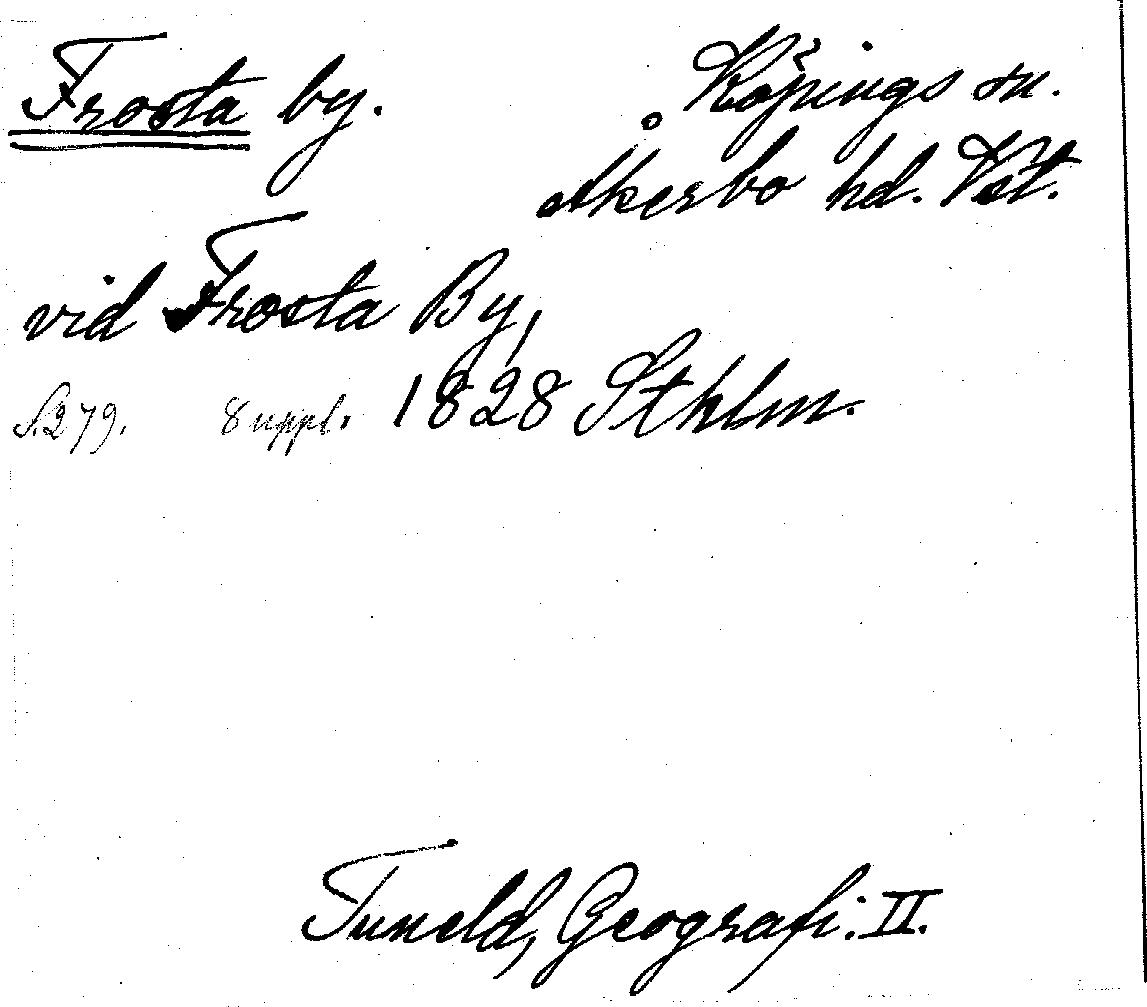 Frosta by.
Köpings sn.
Åkerbo hd. Vst.
vid Frosta By,
S. 279. 8 uppl. 1828 Sthlm.
Tuneld, Geografi. II.